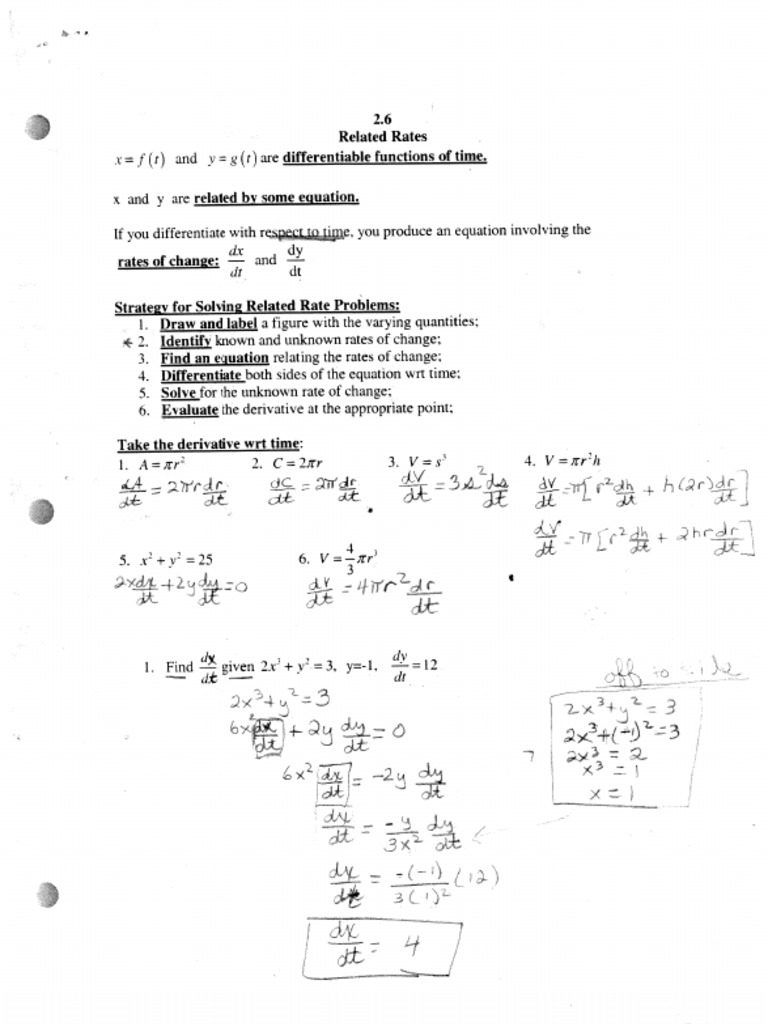 2.6
Related Rates
x = f(t) and y = g(t) are differentiable functions of time.
x and y are related by some equation.
If you differentiate with respect to time, you produce an equation involving the
rates of change: dx/dt and dy/dt
Strategy for Solving Related Rate Problems:
1. Draw and label a figure with the varying quantities;
* 2. Identify known and unknown rates of change;
3. Find an equation relating the rates of change;
4. Differentiate both sides of the equation wrt time;
5. Solve for the unknown rate of change;
6. Evaluate the derivative at the appropriate point;
Take the derivative wrt time:
1. A = πr² 2. C = 2πr 3. V = s³ 4. V = πr²h
dA/dt = 2πr dr/dt dC/dt = 2π dr/dt dV/dt = 3s² ds/dt dV/dt = π[r² dh/dt + h(2r) dr/dt]
dV/dt = π[r² dh/dt + 2hr dr/dt]
5. x² + y² = 25 6. V = 4/3 πr³
2x dx/dt + 2y dy/dt = 0 dV/dt = 4πr² dr/dt
1. Find dx/dt given 2x³ + y² = 3, y=-1, dy/dt = 12
2x³ + y² = 3
6x² dx/dt + 2y dy/dt = 0
6x² dx/dt = -2y dy/dt
dx/dt = -y/3x² dy/dt
dx/dt = -(-1)/3(1)² (12)
dx/dt = 4
off to side
2x³ + y² = 3
2x³ + (-1)² = 3
2x³ = 2
x³ = 1
x = 1